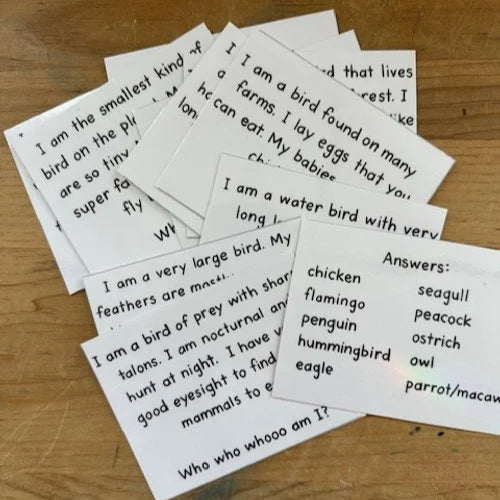 I am the smallest kind of
bird on the
are so tiny
super
fly
that lives
I
I am a bird found on many
farms. I lay eggs that you
can eat. My babies
I am a water bird with very
long
I am a very large bird. My
feathers are mostly
I am a bird of prey with sharp
talons. I am nocturnal and
hunt at night. I have
good eyesight to find
mammals to
Who who whooo am I?
Answers:
chicken
flamingo
penguin
hummingbird
eagle
seagull
peacock
ostrich
owl
parrot/macaw